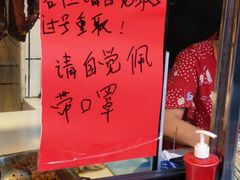 过号重取！
请自觉佩
带口罩